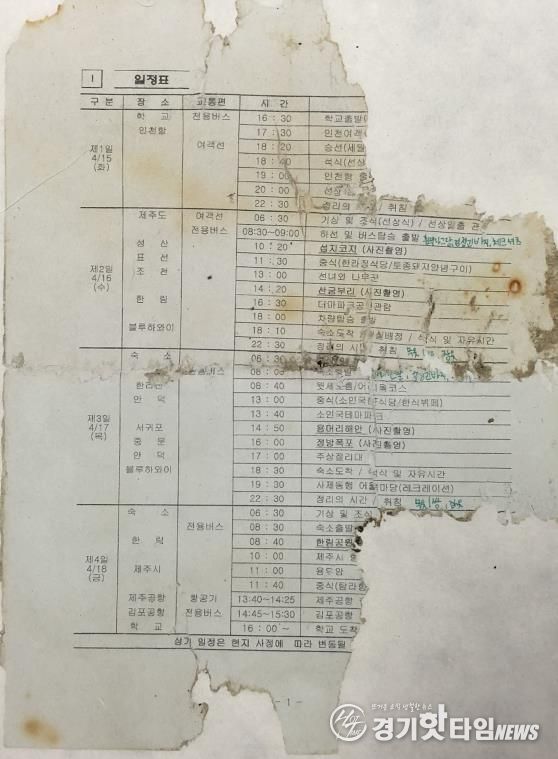 I 일정표
구 분 장 소 교통편 시 간
제1일 4/15 (화)
학 교 전용버스 16 : 30 학교출발(
인천항 17 : 30 인천여객
여객선 18 : 20 승선(세월
18 : 40 석식(선상
19 : 00 인천항 출
20 : 00 선상
22 : 30 정리의 / 취침
제2일 4/16 (수)
제주도 여객선 06 : 30 기상 및 조식(선상식) / 선상일출 관
전용버스 08:30~09:00 하선 및 버스탑승 출발
성 산 10 : 20 섭지코지 (사진촬영)
표 선 11 : 30 중식(한라정식당/토종돼지양념구이)
조 천 13 : 00 선녀와 나무꾼
14 : 20 산굼부리 (사진촬영)
한 림 16 : 30 더마파크공연관람
18 : 00 차량탑승 출발
블루하와이 18 : 10 숙소도착 / 실배정 / 석식 및 자유시간
22 : 30 정리의 시간 / 취침
제3일 4/17 (목)
숙 소 06 : 30
08 : 00 숙소출발
한라산 08 : 40 윗세오름/어리목코스
안 덕 13 : 00 중식(소인국 식당/한식뷔페)
13 : 40 소인국테마파크
서귀포 14 : 50 용머리해안 (사진촬영)
중 문 16 : 00 정방폭포 (사진촬영)
안 덕 17 : 00 주상절리대
블루하와이 18 : 30 숙소도착 / 석식 및 자유시간
19 : 30 사제동행 어울 마당(레크레이션)
22 : 30 정리의 시간 / 취침
제4일 4/18 (금)
숙 소 06 : 30 기상 및 조식
전용버스 08 : 30 숙소출발
한 림 08 : 40 한림공원
10 : 00 제주시
제주시 11 : 00 용두암
11 : 40 중식(탐라
제주공항 항공기 13:40~14:25 제주공항
김포공항 전용버스 14:45~15:30 김포공항
학 교 16 : 00 ~ 학교 도착
상기 일정은 현지 사정에 따라 변동될
- 1 -
HOT TIME 뜨거운 소식 생생한 뉴스
경기핫타임NEWS